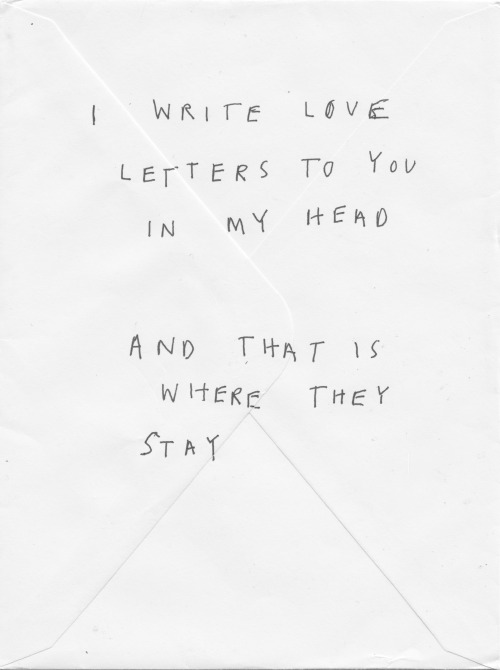 I WRITE LOVE
LETTERS TO YOU
IN MY HEAD
AND THAT IS
WHERE THEY
STAY